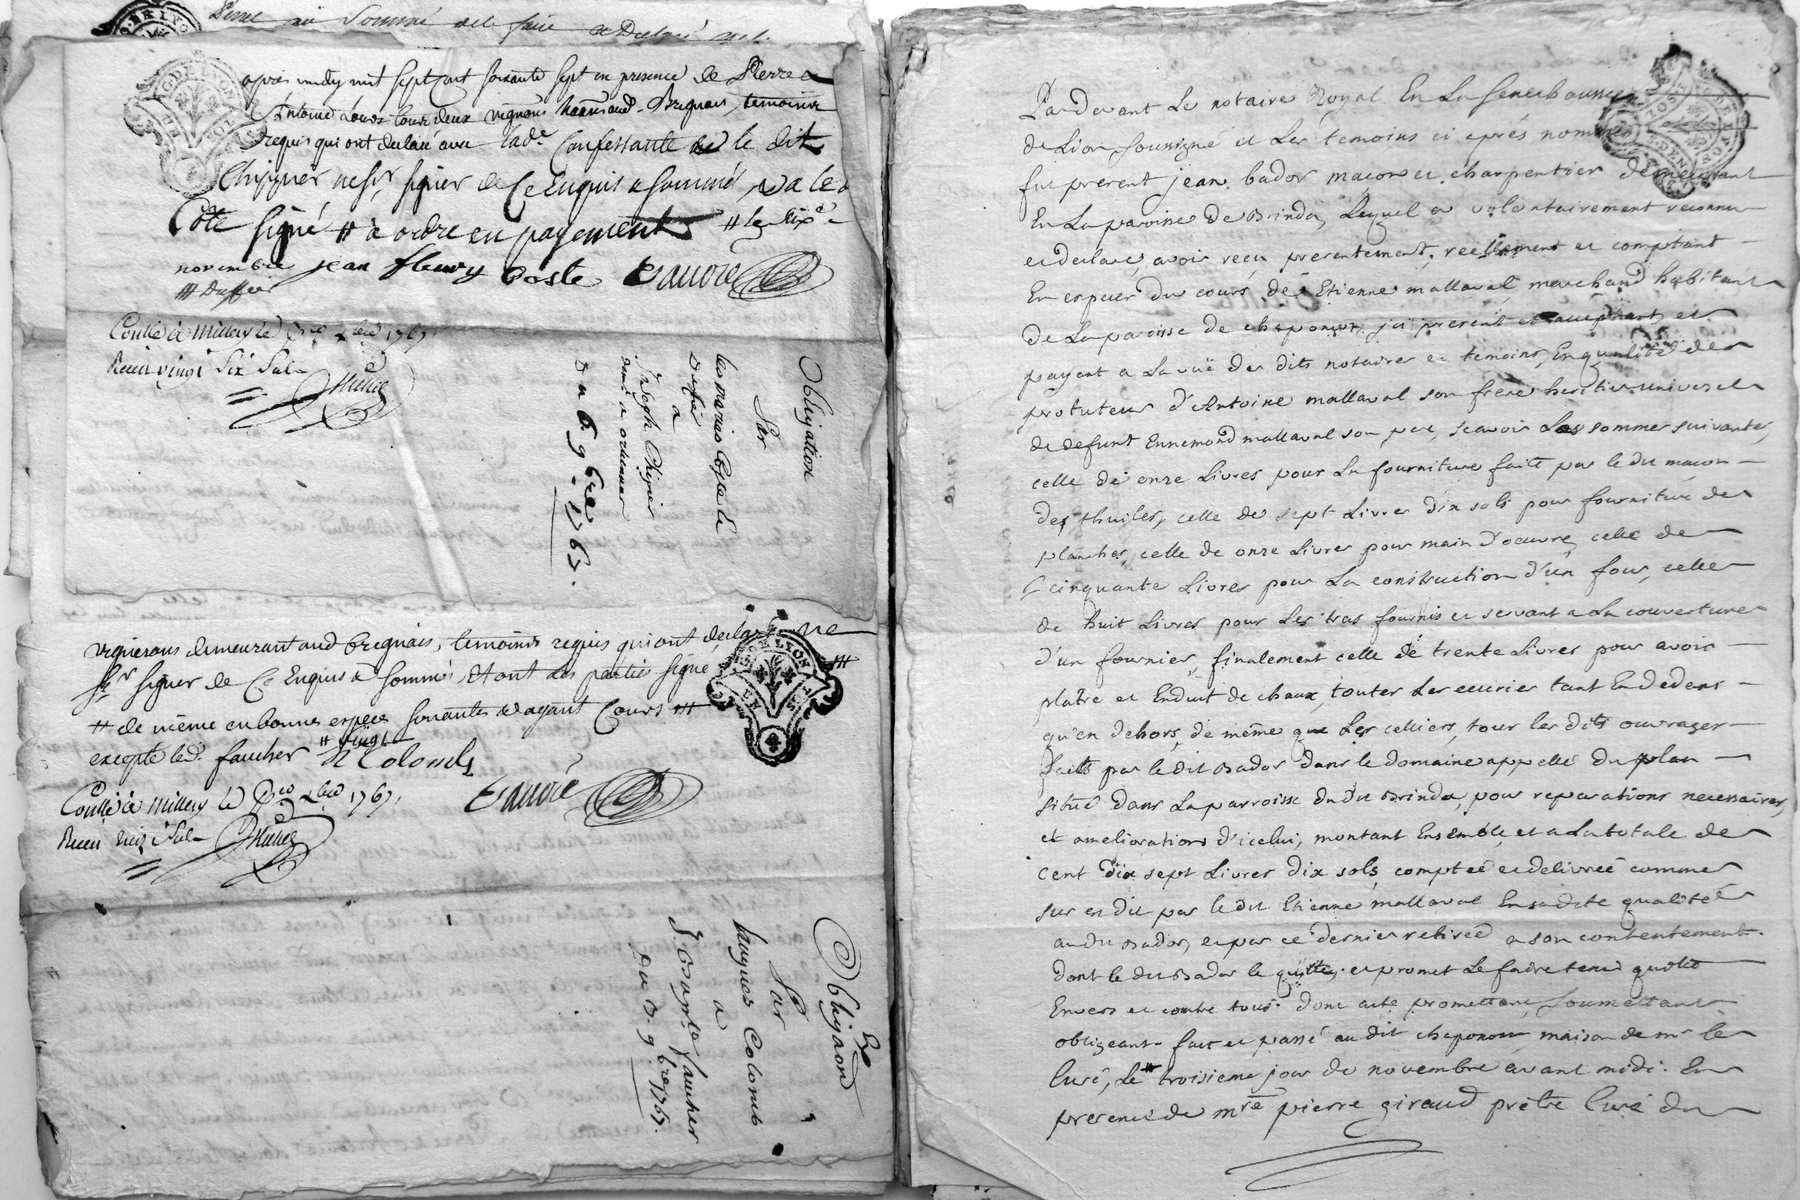 Pierre
sommé de le faire
GN. DE LYON
après midy mil sept cent soixante sept en presence de Pierre &
Antoine tous deux vignerons Brignais, temoins
requis qui ont declaré avec lad.e Confessante le dit
Chipier ne sçr signer de ce Enquis & sommés,
Coste signé # à ordre en payement # le dix.e
novembre jean fleury Coste
# Duffier
Conllé à Millery le 1767.
Receu vingt six sols
Obligation
Par
les mariés Coste &
Duffié
à
Joseph Chipier
du 9 bre 1767.
vignerons demeurant aud Brignais, temoins requis qui ont declaré ne
sçr signer de ce Enquis & sommés, & ont les parties signé
# de même en bonnes especes sonnantes & ayant Cours #
excepté led. faucher # vingt
H Colomb
Conllé à Millery le 1767.
Receu sols
GN. DE LYON
Obligaon
Par
hugues Colomb
à
faucher
du 9.bre 1767.
Pardevant Le notaire Royal En La senechaussée
de Lion soussigné et Les temoins ci aprés nommés
fut present jean bador maçon et charpentier demeurant
En La paroisse de Brinda, Lequel a volontairement reconnu
et declaré, avoir reçu presentement, reéllement et comptant
En especes du cours de Etienne mallaval marchand habitant
de La paroisse de chaponost ici present et acceptant, et
payant a La vüe des dits notaires et temoins, En qualité de
protuteur d'Antoine mallaval son frere heritier universel
de defunt Ennemond mallaval son pere, scavoir Les sommes suivantes,
celle de onze Livres pour La fourniture faite par le dit maçon
des thuiles, celle de sept Livres dix sols pour fourniture de
planches, celle de onze Livres pour main d'oeuvre, celle de
cinquante Livres pour La construction d'un four, celle
de huit Livres pour Les tras fournis et servant a La couverture
d'un fournier, finalement celle de trente Livres pour avoir
platre et Enduit de chaux, toutes Les ecuries tant En dedans
qu'en dehors, de même que Les celliers, tous les dits ouvrages
faits par le dit Bador dans le domaine appellé du plan
situé dans La parroisse du dit Brinda, pour reparations necessaires,
et ameliorations d'icelui, montant Ensemble, et a La totale de
cent dix sept Livres dix sols, comptée et delivreé comme
sus en dit par le dit Etienne mallaval En sadite qualité
au dit Bador, et par ce dernier retireé a son contentement
dont le dit Bador le quitte, et promet Le fadre tenir quitte
Envers et contre tous. dont acte promettant, soumettant
obligeant fait et passé au dit chaponost maison de mr le
Curé, Le troisieme jour de novembre avant midi. En
presence de mre pierre giraud prêtre Curé du